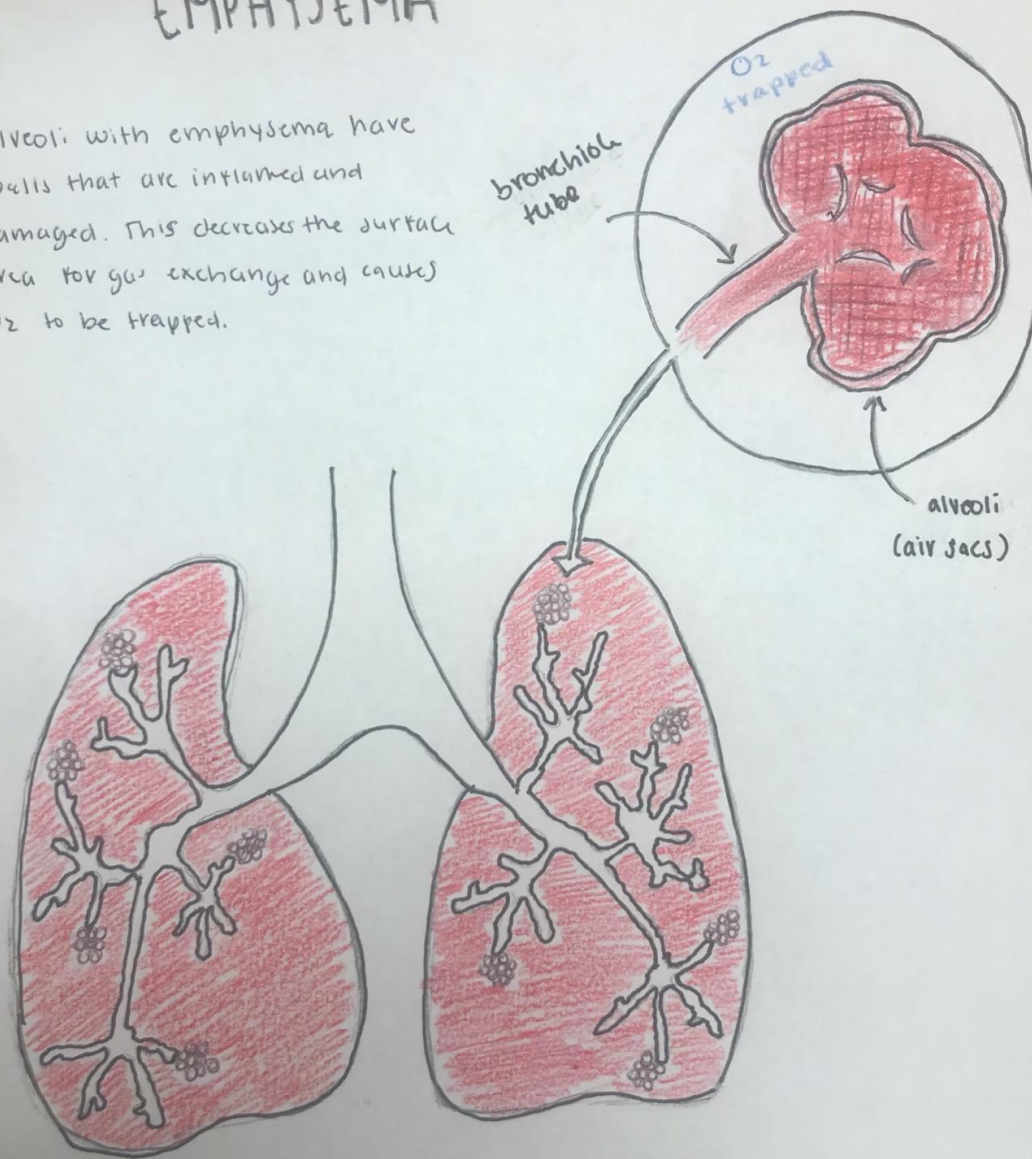 EMPHYSEMA
lveoli with emphysema have
alls that are inflamed and
amaged. This decreases the surface
rea for gas exchange and causes
2 to be trapped.
O2
trapped
bronchiole
tube
alveoli
(air sacs)